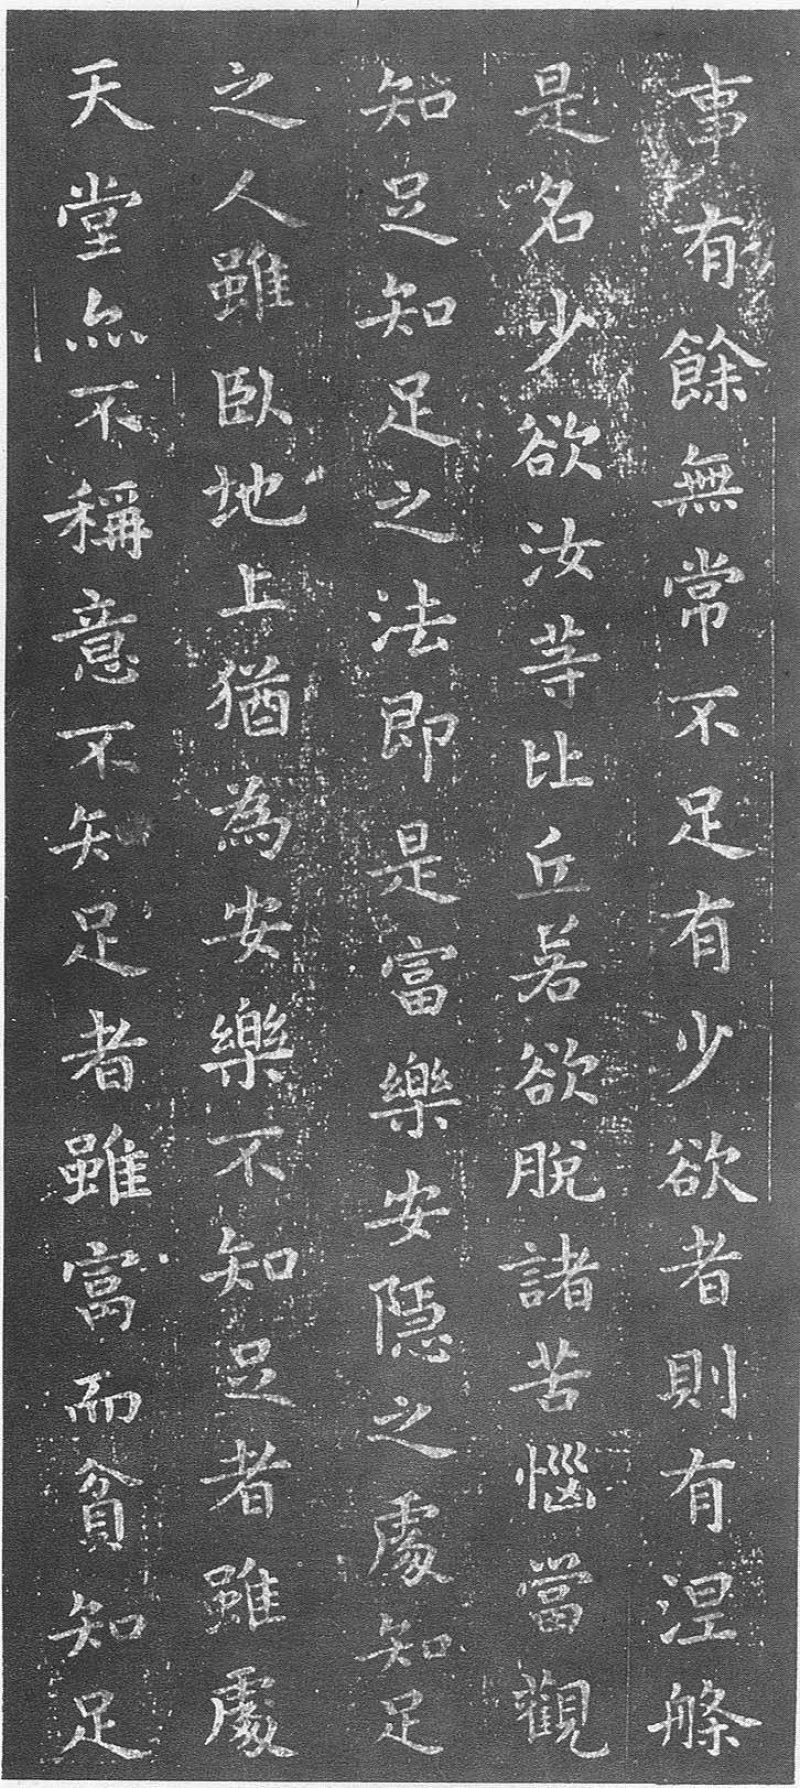 事有餘無常不足有少欲者則有涅槃
是名少欲汝等比丘若欲脫諸苦惱當觀
知足知足之法即是富樂安隱之處知足
之人雖臥地上猶為安樂不知足者雖處
天堂亦不稱意不知足者雖富而貧知足